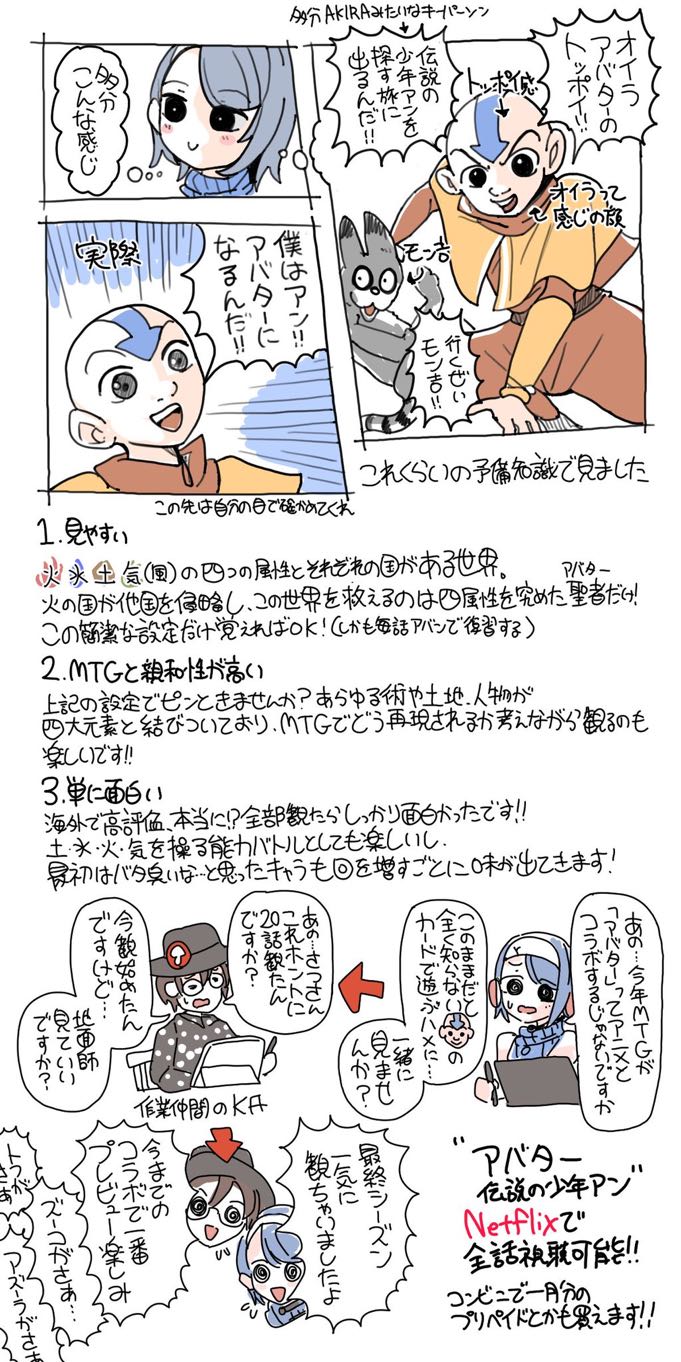 多分AKIRAみたいなキーパーソン
オイラ
アバターの
トッポイ!!
伝説の
少年アンを
探す旅に
出るんだ!!
トッポイ感
オイラって
感じの顔
モン吉
行くぜい
モン吉!!
多分
こんな感じ
実際
僕はアン!!
アバターに
なるんだ!!
これくらいの予備知識で見ました
この先は自分の目で確かめてくれ
1.見やすい
火水土気(風)の四つの属性とそれぞれの国がある世界。
アバター
火の国が他国を侵略し、この世界を救えるのは四属性を究めた聖者だけ!
この簡潔な設定だけ覚えればOK!(しかも毎話アバンで復習する)
2.MTGと親和性が高い
上記の設定でピンときませんか?あらゆる術や土地、人物が
四大元素と結びついており、MTGでどう再現されるか考えながら観るのも
楽しいです!!
3.単に面白い
海外で高評価、本当に!?全部観たらしっかり面白かったです!!
土・水・火・気を操る能力バトルとしても楽しいし、
最初はバタ臭いな…と思ったキャラも回を増すごとに味が出てきます!
あの…今年MTGが
「アバター」ってアニメと
コラボするじゃないですか
このままだと
全く知らない
の
カードで遊ぶハメに…
一緒に
見ませ
んか?
あの…さっさん
これホントに
20話観たん
ですか?
今観始めたん
ですけど…
地面師
見ていい
ですか?
作業仲間のKA
最終シーズン
一気に
観ちゃいましたよ
今までの
コラボで一番
プレビュー楽しみ
ズーコがさあ…
トフが
さあ
アズーラがさあ
"アバター
伝説の少年アン"
Netflixで
全話視聴可能!!
コンビニで一月分の
プリペイドとかも買えます!!